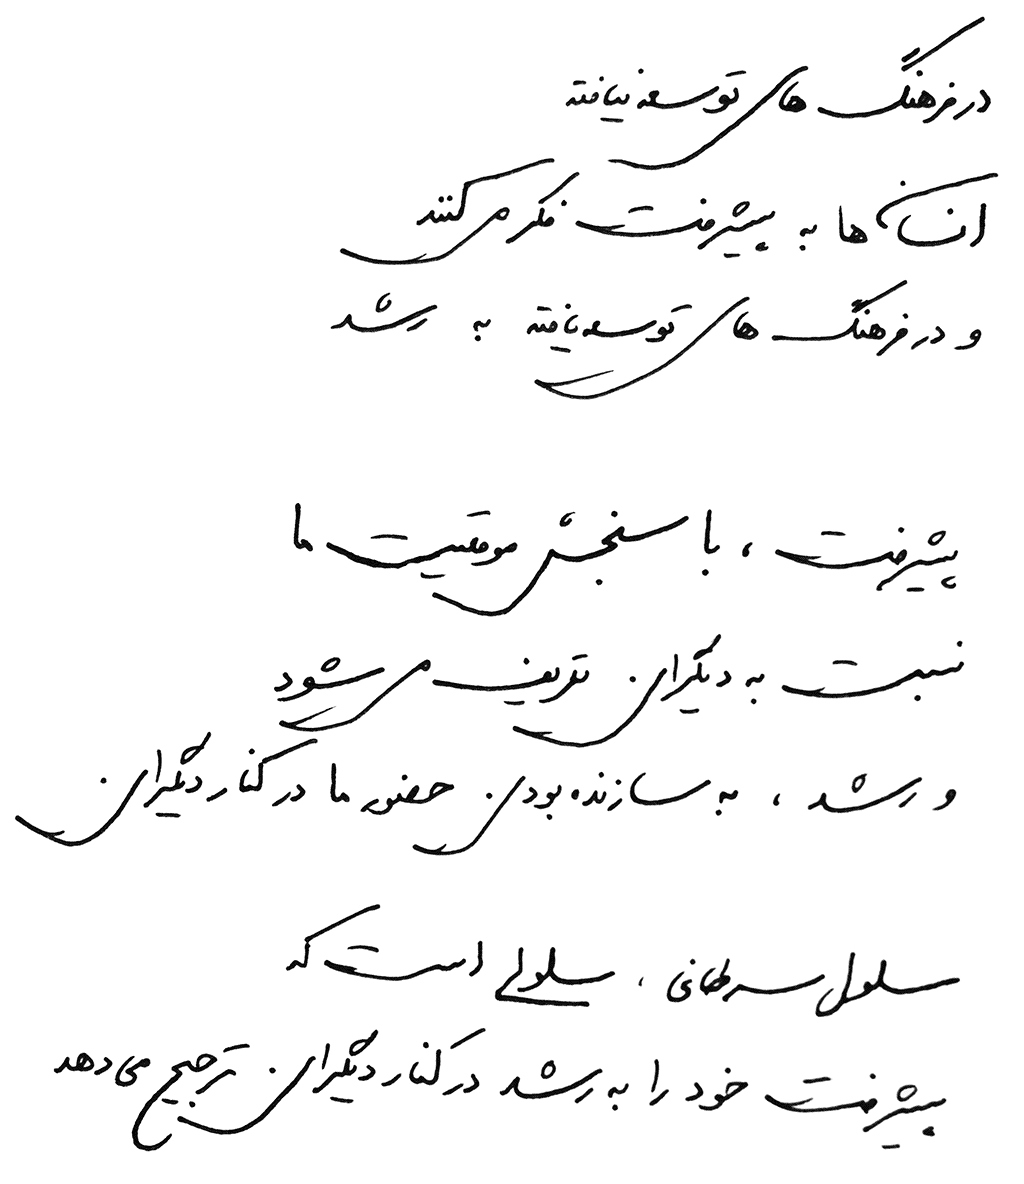 در فرهنگ های توسعه نیافته
انسان ها به پیشرفت فکر می کنند
و در فرهنگ های توسعه یافته به رشد
پیشرفت ، با سنجش موقعیت ما
نسبت به دیگران تعریف می شود
و رشد ، به سازنده بودن حضور ما در کنار دیگران
سلول سرطانی ، سلولی است که
پیشرفت خود را به رشد در کنار دیگران ترجیح می دهد